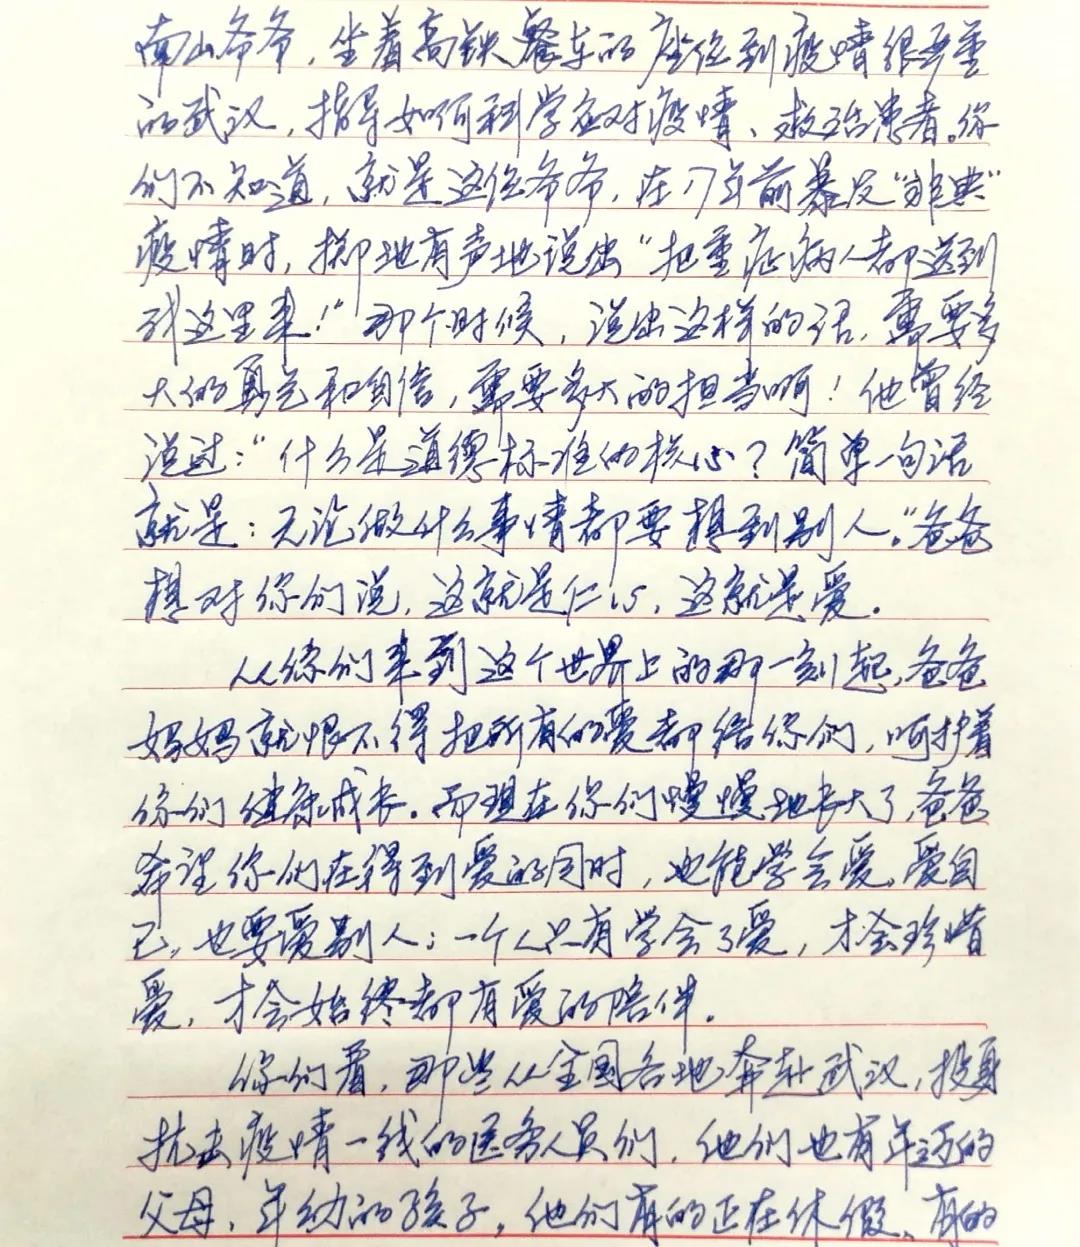 南山爷爷，坐着高铁餐车的座位到疫情很严重
的武汉，指导如何科学应对疫情、救治患者。你
们不知道，就是这位爷爷，在17年前暴发“非典”
疫情时，掷地有声地说出“把重症病人都送到
我这里来！”那个时候，说出这样的话，需要多
大的勇气和自信，需要多大的担当啊！他曾经
说过：“什么是道德标准的核心？简单一句话
就是：无论做什么事情都要想到别人。”爸爸
想对你们说，这就是仁心，这就是爱。
从你们来到这个世界上的那一刻起，爸爸
妈妈就恨不得把所有的爱都给你们，呵护着
你们健康成长。而现在你们慢慢地长大了，爸爸
希望你们在得到爱的同时，也能学会爱，爱自
己，也要爱别人；一个人只有学会了爱，才会珍惜
爱，才会始终都有爱的陪伴。
你们看，那些从全国各地奔赴武汉，投身
抗击疫情一线的医务人员们，他们也有年迈的
父母、年幼的孩子，他们有的正在休假、有的